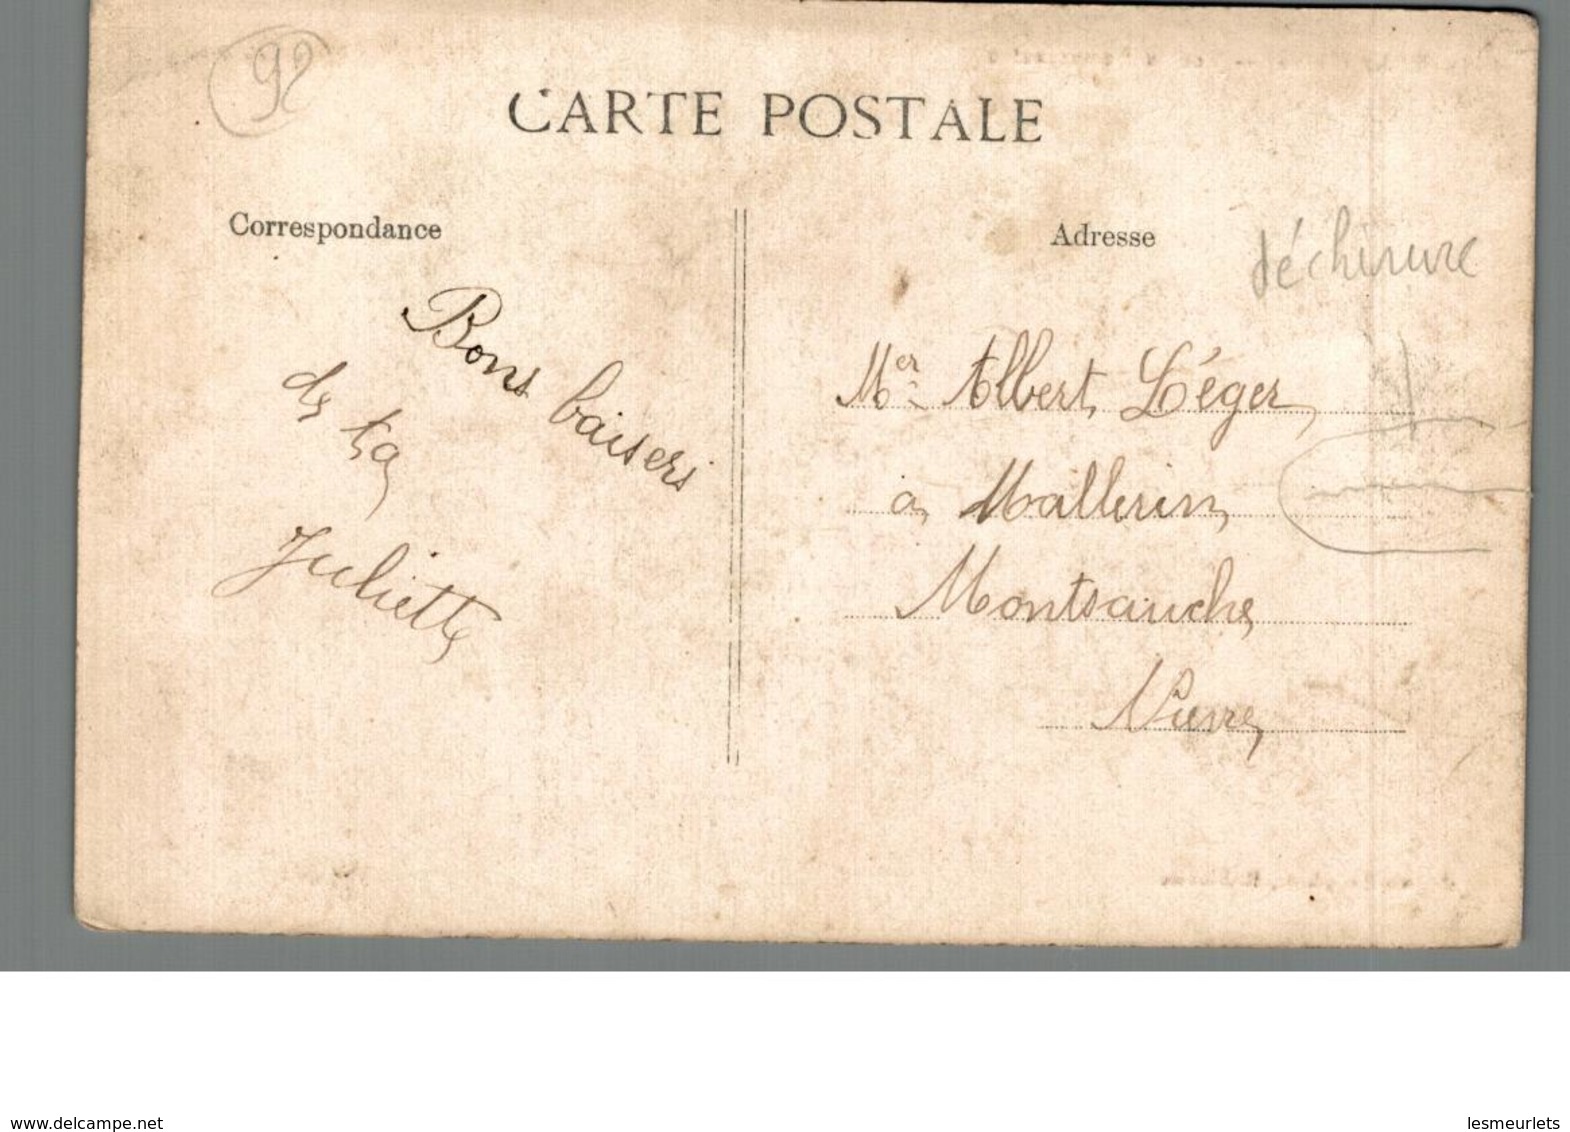 92
CARTE POSTALE
Correspondance
Bons baisers
de ta
Juliette
Adresse
déchirure
Mer Albert Léger
a Mallerin
Montsauche
Nievre
www.delcampe.net
lesmeurlets